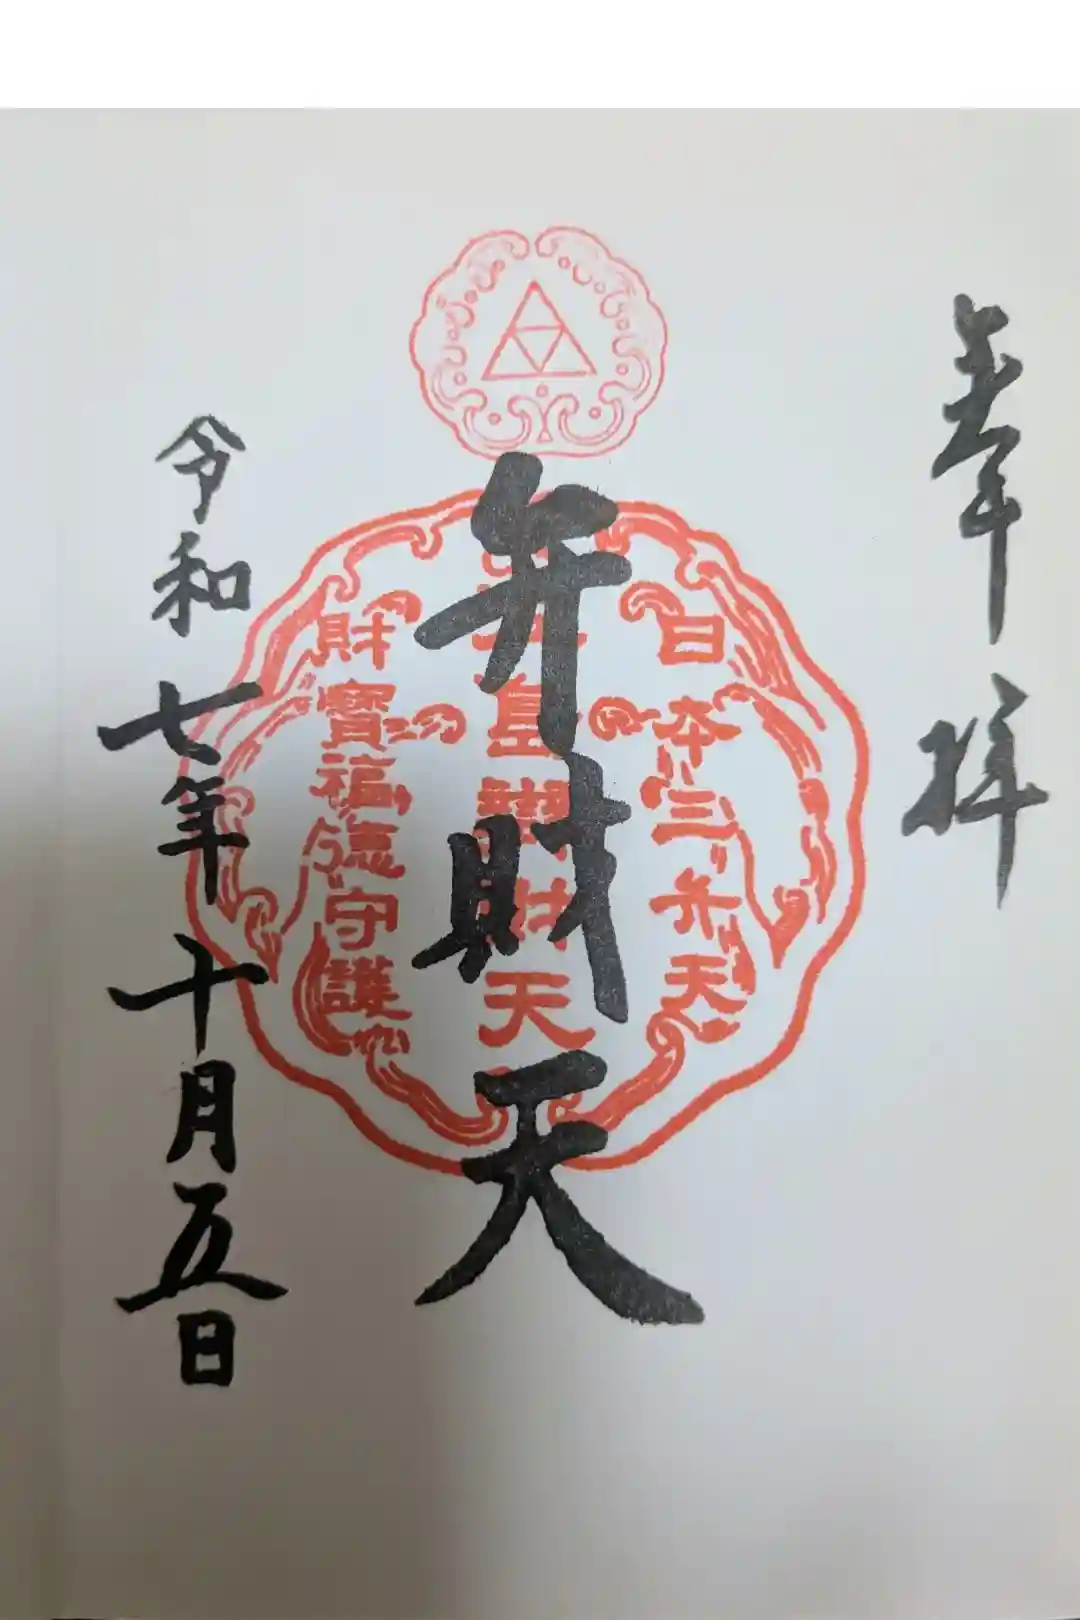 奉拝
日本三弁天
島辨財天
財寶福徳守護
弁財天
令和七年十月五日